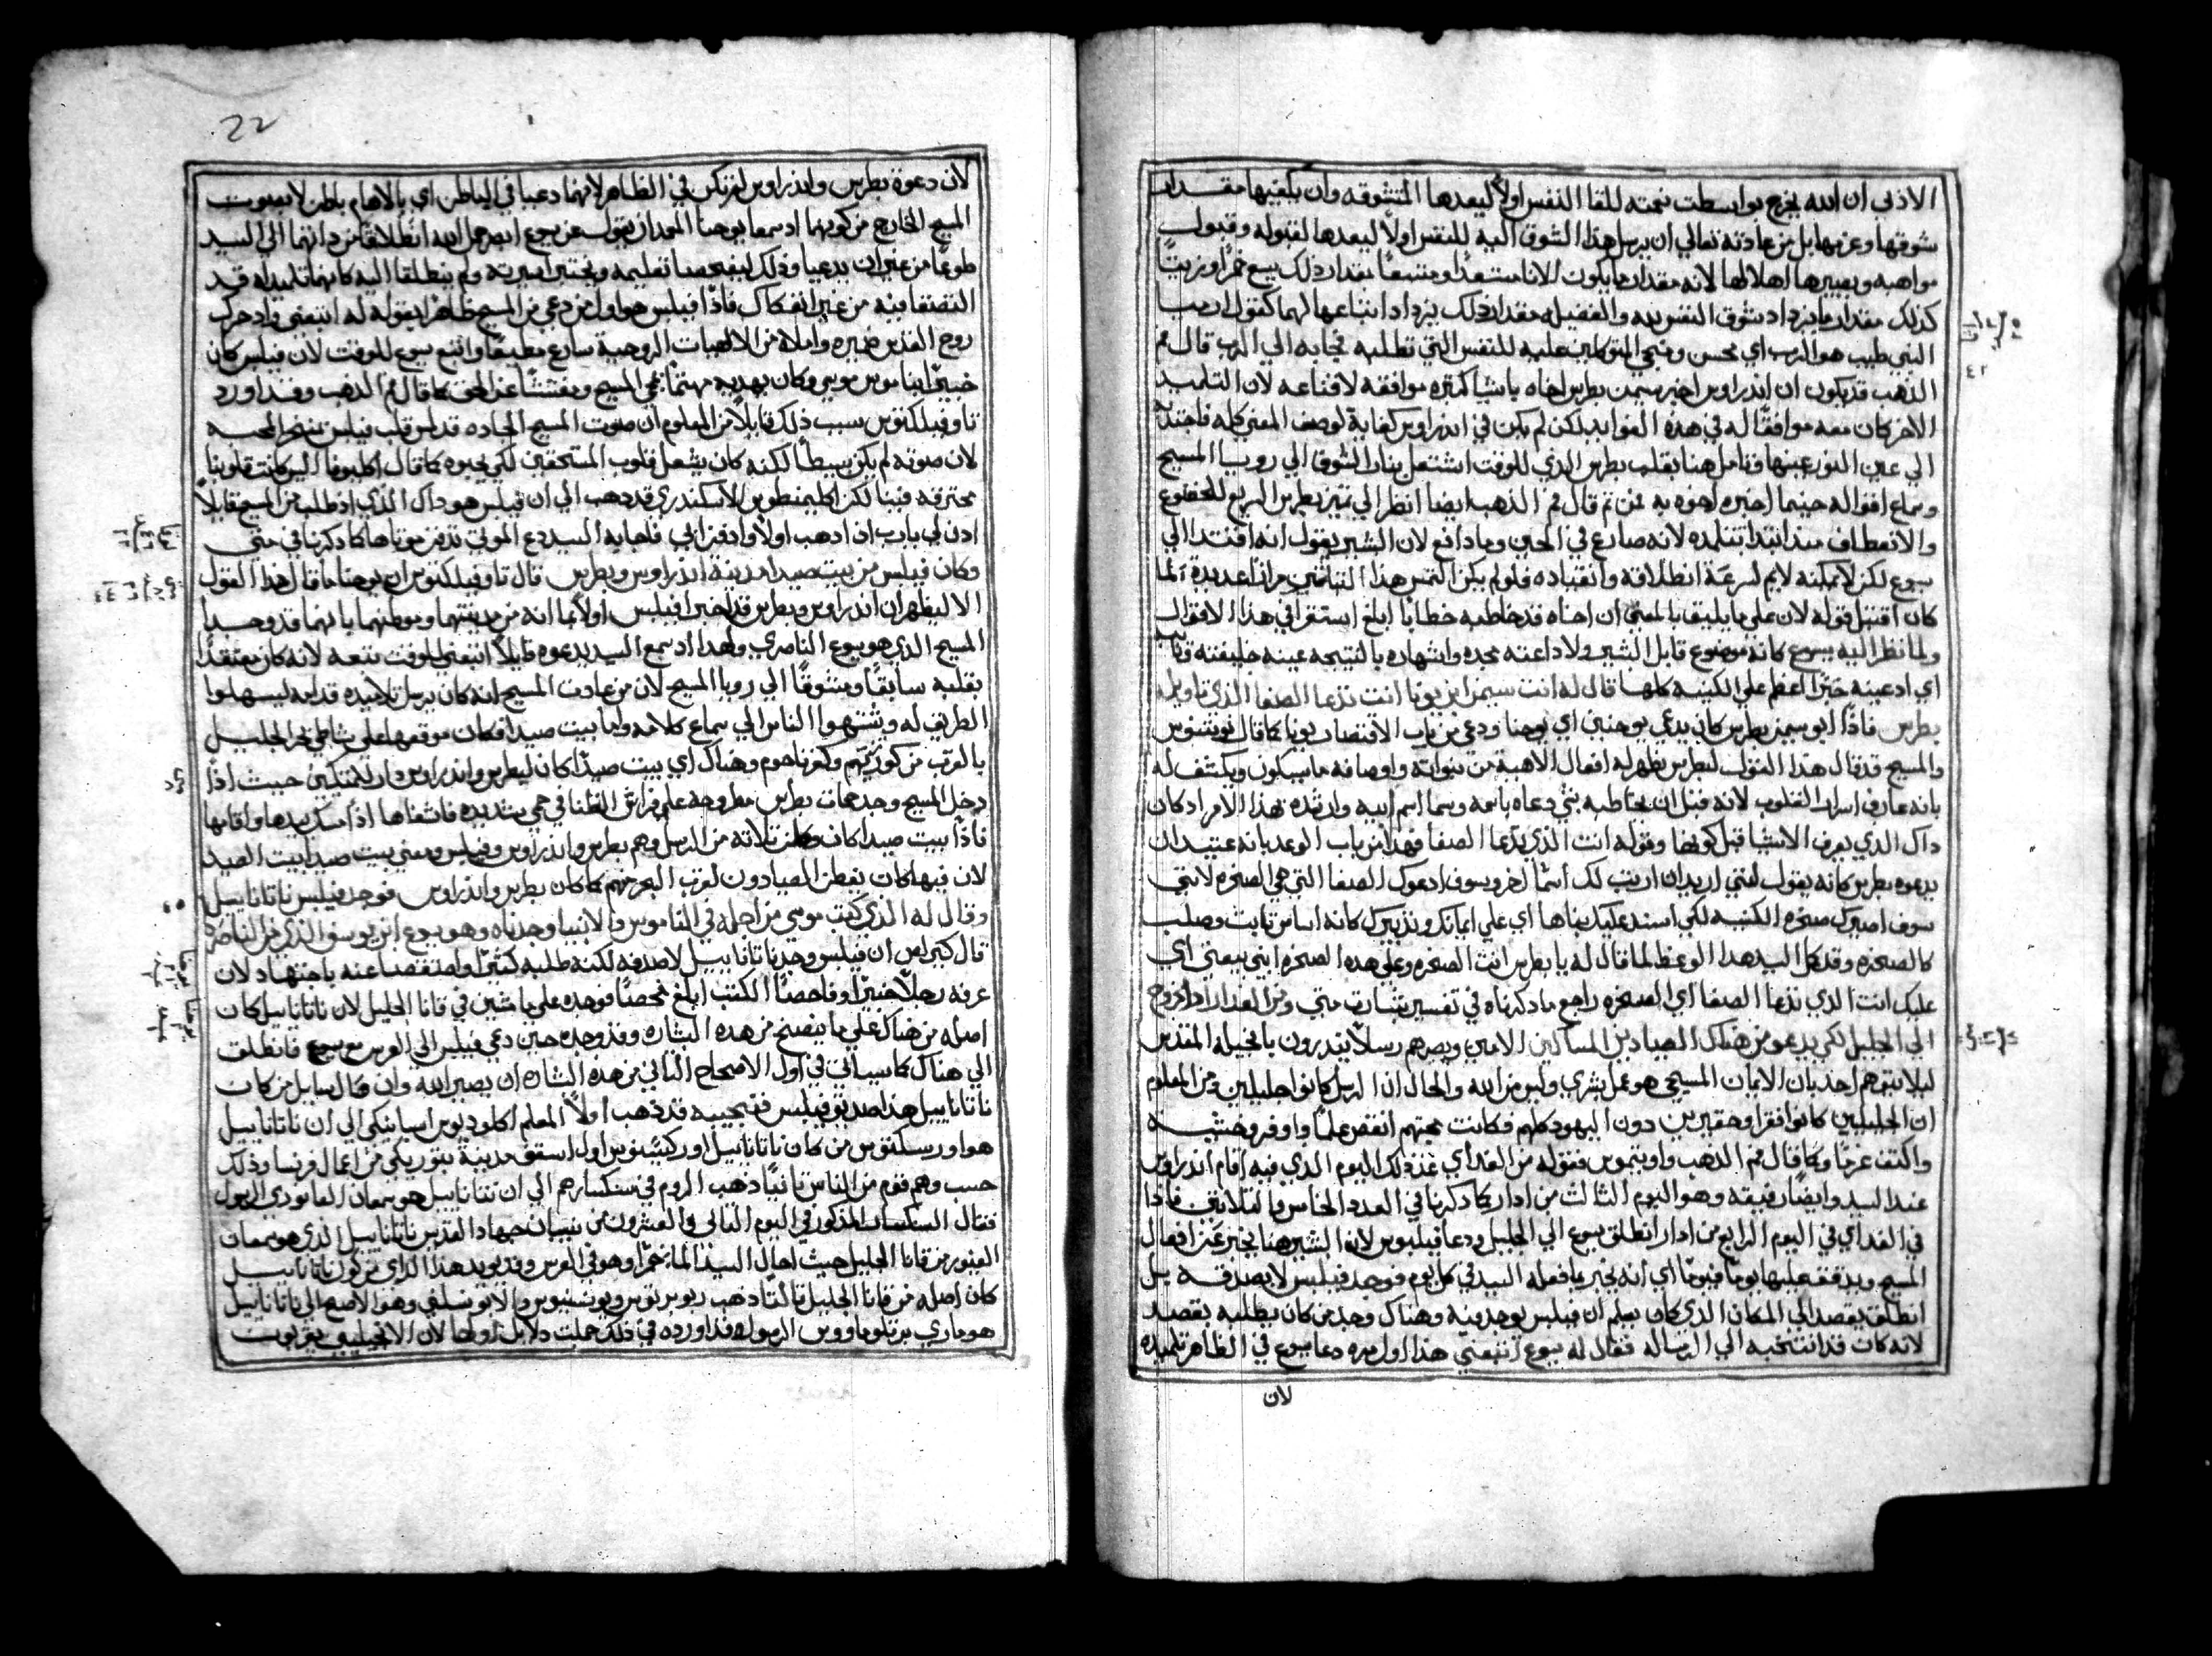 الازلي ان الله يخرج بواسطت نعمته للقا النفس اولاً ليعدها المتشوقه وان يلقيها مقدار
شوقها وعزمها بل من عادته تعالي ان يرسل هذا الشوق اليه للنفس اولاً ليعدها لقبوله وقبول
مواهبه ويصيرها اهلا لها لانه مقدار ما يكون الانا مستعدًا ومتسعًا بمقدار ذلك يسع خمرًا او زيتًا
كذلك مقدار ما يزداد شوق النفس لله والفضيله مقدار ذلك يزداد اتساعها لهما كقول ارميا
النبي طيب هو الرب اي محسن وفرج المتوكلين عليه للنفس التي تطلبه فجابه الي الرب قال فم
الذهب قد يكون ان اندراوس اخبر سيمن بطرس اخاه باشيا كثيره موافقه لاقناعه لان التلميد
الاخر كان معه موافقًا له في هذه الفوايد لكن لم يكن في اندراوس كفاية لوصف المعني كله فاجتذبه
الي عين النور عينها وتامل هنا بقلب بطرس الذي للوقت اشتعل بنار الشوق الي رويا المسيح
وسماع اقواله حينما اخبره اخوه به فمن تم قال فم الذهب ايضا انظر الي تميز بطرس السريع للخضوع
والانعطاف منذ ابتدا تتلمذه لانه صارع في الحين وما دافع لان البشير يقول انه اقتده الي
يسوع لكن لا يمكنه لايم لسرعة انطلاقه وانقياده فلو لم يكن التمس هذا التباشير مرارًا عديدة لما
كان اقتبل قوله لان علي ما يليق بالمعني ان اخاه قد خاطبه خطابًا ابلغ استقرا في هذا الاقوال
ولما نظر اليه يسوع كانه موضوع قابل الشير ولاداعته مجده واشهاره بالنتيجه عينه خليفته قايلا
اي ادعينه حبرًا اعظم علي الكنيسه كلها قال له انت سيمن ابن يونا انت تدعا الصفا الذي تاويله
بطرس فاذًا ابو سيمن بطرس كان يدعي يوحنين اي يوحنا ودعي من باب الاقتصار يونا كما قال يوتنسيوس
والمسيح قد قال هذا القول لبطرس يظهر له افعال الاهية من نبواته واوصافه ما سيكون ويكشف له
بانه عارف اسرار القلوب لانه قبل ان يخاطبه بشي دعاه باسمه وسما اسم ابيه وارشده بهذا الامر اذ كان
داك الذي يعرف الاشيا قبل كونها وقوله انت الذي تدعا الصفا فهذا من باب الوعد بانه عتيد ان
يدعوه بطرس كانه يقول لنبني اريد ان ارتب لك اسمًا اخر وسوف ادعوك الصفا التي هي الصخره لانني
سوف اصيرك صخرة الكنيسه لكي اسند عليك بناها اي علي ايمانك وتدبيرك كانه اساس تابت وصلب
كالصخره وقد كمل السيد هدا الوعظ لما قال له يا بطرس انت الصخره وعلي هده الصخره ابني بيعتي اي
عليك انت الذي تدعا الصفا اي الصخره راجع ما ذكرناه في تفسير بشارت متي وفي الغد اراد الخروج
الي الجليل لكي يدعو من هناك الصيادين المساكين الاميين ويصيرهم رسلًا ينذرون بانجيله المقدس
ليلا يتوهم احد بان الايمان المسيحي هو عمل بشري وليس من الله والحال ان الرسل كانوا جليليين فمن المعلوم
ان الجليليين كانوا فقرا وحقيرين دون اليهود كلهم وكانت محبتهم انقص علمًا واوفر وخشيه
واكتف عرضًا وكما قال فم الذهب واوتيموس فقوله من الغد اي غد ذلك اليوم الذي فيه اقام اندراوس
عند السيد وايضًا رفيقه وهو اليوم التالت من ادار كما ذكرنا في العدد الخامس والتلاتين فاذا
في الغد اي في اليوم الرابع من ادار انطلق يسوع الي الجليل ودعا فيلبوس لان البشير هنا يخبر عن افعال
المسيح ويدققه عليها يومًا فيومًا اي انه يخبر بما فعله السيد في كل يوم فوجد فيلبس لا بصدفه بل
انطلق بقصد الي المكان الذي كان يعلم ان فيلبس يوجد فيه وهناك وجد من كان يطلبه بقصد
لانه كان قد انتخبه الي الرساله فقال له يسوع اتبعني هذا اول مره دعا يسوع في الظاهر تلميذه
لان
22
لان دعوة بطرس واندراوس لم تكن في الظاهر لانهما دعيا في الباطن اي بالالهام باطن لا بصوت
المسيح الخارج من كونهما اد سمعا يوحنا المعمدان يقول عن يسوع انه حمل الله انطلاقا من داتهما الي السيد
طوعًا من غير ان يدعيا وذلك ليفحصا تعليمه ويختبرا سيرته ولم ينطلقا اليه كانهما تلميداه قد
التصقا فيه من غير انفكاك فاذًا فيلبس هو اول من دعي من المسيح ظاهرًا بقوله له اتبعني واد حرك
روح القدس ضميره واملاه من الالهيات الروحية سارع مطيعًا واتبع يسوع للوقت لان فيلبس كان
خبيرًا بناموس موسي وكان يهديه مهتمًا بمجي المسيح ومفتشًا عن الحق كما قال فم الذهب وقد اورد
تاوفيلكتوس سبب ذلك قايلًا من المعلوم ان صوت المسيح الجاده قد لمس قلب فيلبس بنخس المحبه
لان صوته لم يكن بسيطًا لكنه كان يشعل قلوب المستحقين لكي يحبوه كما قال اكليوفا اليس كانت قلوبنا
محترقه فينا لكن اكليمنطوس الاسكندري قد دهب الي ان فيلبس هو داك الذي اذ طلب من المسيح قايلًا
ادن لي يا رب ان ادهب اولًا وادفن ابي فاجابه السيد دع الموتي تدفن موتاها كما ذكرنا في متي
وكان فيلبس من بيت صيدا مدينة اندراوس وبطرس قال تاوفيلكتوس ان يوحنا ما قال هذا القول
الا ليظهر ان اندراوس وبطرس قد اخبرا فيلبس اولًا بما انه من مدينتهما وموطنهما بانهما قد وجدا
المسيح الذي هو يسوع الناصري ولهدا اد سمع السيد يدعوه قايلًا اتبعني للوقت تبعه لانه كان معتقدًا
بقلبه سابقًا ومتشوقًا الي رويا المسيح لان من عادت المسيح انه كان يرسل تلاميذه قدامه ليسهلوا
الطريق له ويشتهوا الناس الي سماع كلامه واما بيت صيدا فكان موقعها علي شاطي بحر الجليل
بالقرب من كورزين وكفرناحوم وهناك اي بيت صيدا كان لبطرس واندراوس دار للمتكين حيث اذا
دخل المسيح وجد حمات بطرس مطروحه علي فراش الظنا في حمي شديده فاشفاها اذ امسك بيدها واقامها
فاذًا بيت صيدا كانت وطن تلاته من الرسل وهم بطرس واندراوس وفيلبس ومعني بيت صيدا بيت الصيد
لان فيها كان يقطن الصيادون لقرب البحر منهم كما كان بطرس واندراوس فوجد فيلبس ناتاناييل
وقال له الذي كتب موسي من اجله في الناموس والانبيا وجدناه وهو يسوع ابن يوسف الذي من الناصره
قال كيرلس ان فيلبس وجد ناتاناييل لا صدفه لكنه طلبه كثيرًا واستقصا عنه باجتهاد لان
عرفه رجلًا خبيرًا وفاحصًا الكتب ابلغ فحصًا فوجده علي ما يتبين في قانا الجليل لان ناتاناييل كان
اصله من هناك علي ما يتضح من هده البشاره وقد وجده حين دعي فيلبس الي العرس مع يسوع فانطلق
الي هناك كما سياتي في اول الاصحاح التاني من هده البشاره ان يصير الله وان قال سايل من كان
ناتاناييل هذا صديق فيلبس فنجيبه قد دهب اولًا المعلم اكلوديوس اسبانيكي الي ان ناتاناييل
هو اورسكنوس من كان ناتاناييل اوركيسنوس اول اسقف مدينة بتوريكي من اعمال فرنسا وذلك
حسب وهم قوم من الناس تانيًا دهب الروم في سنكسارهم الي ان نتاناييل هو سمعان القانوي الرسول
فقال السنكسار المذكور في اليوم التاني والعشرون من نيسان جهاد القديس ناتاناييل الذي هو سمعان
الغيور من قانا الجليل حيث احال السيد الما خمرًا وهو في العرس وقد يويد هذا الراي من كون ناتاناييل
كان اصله من قانا الجليل تالتًا دهب روبرتوس ويونسنيوس والانوتسلفي وهو الاصح الي ناتاناييل
هو ماري برتلوماووس الرسول وقد اورده في ذلك جملت دلايل اولها لان الانجيليين يقربون